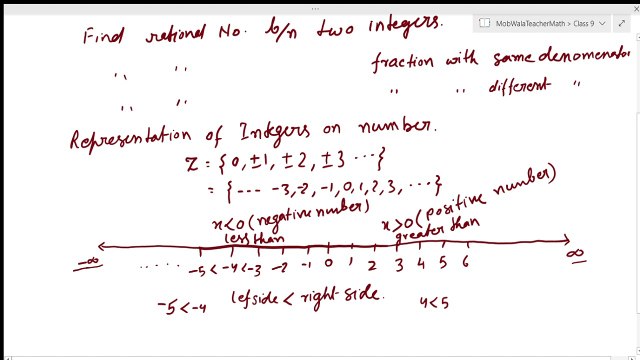 MobWalaTeacherMath > Class 9
Find rational No. b/n two integers.
,, ,, fraction with same denomenator
,, ,, ,, ,, different ,,
Representation of Integers on number.
Z = { 0, ±1, ±2, ±3 ···}
= { --- -3, -2, -1, 0, 1, 2, 3, ···}
x<0 (negative number) x>0 (positive number)
less than greater than
-∞ ..... -5 < -4 < -3 -2 -1 0 1 2 3 4 5 6 ∞
-5 < -4 lefside < right-side. 4 < 5